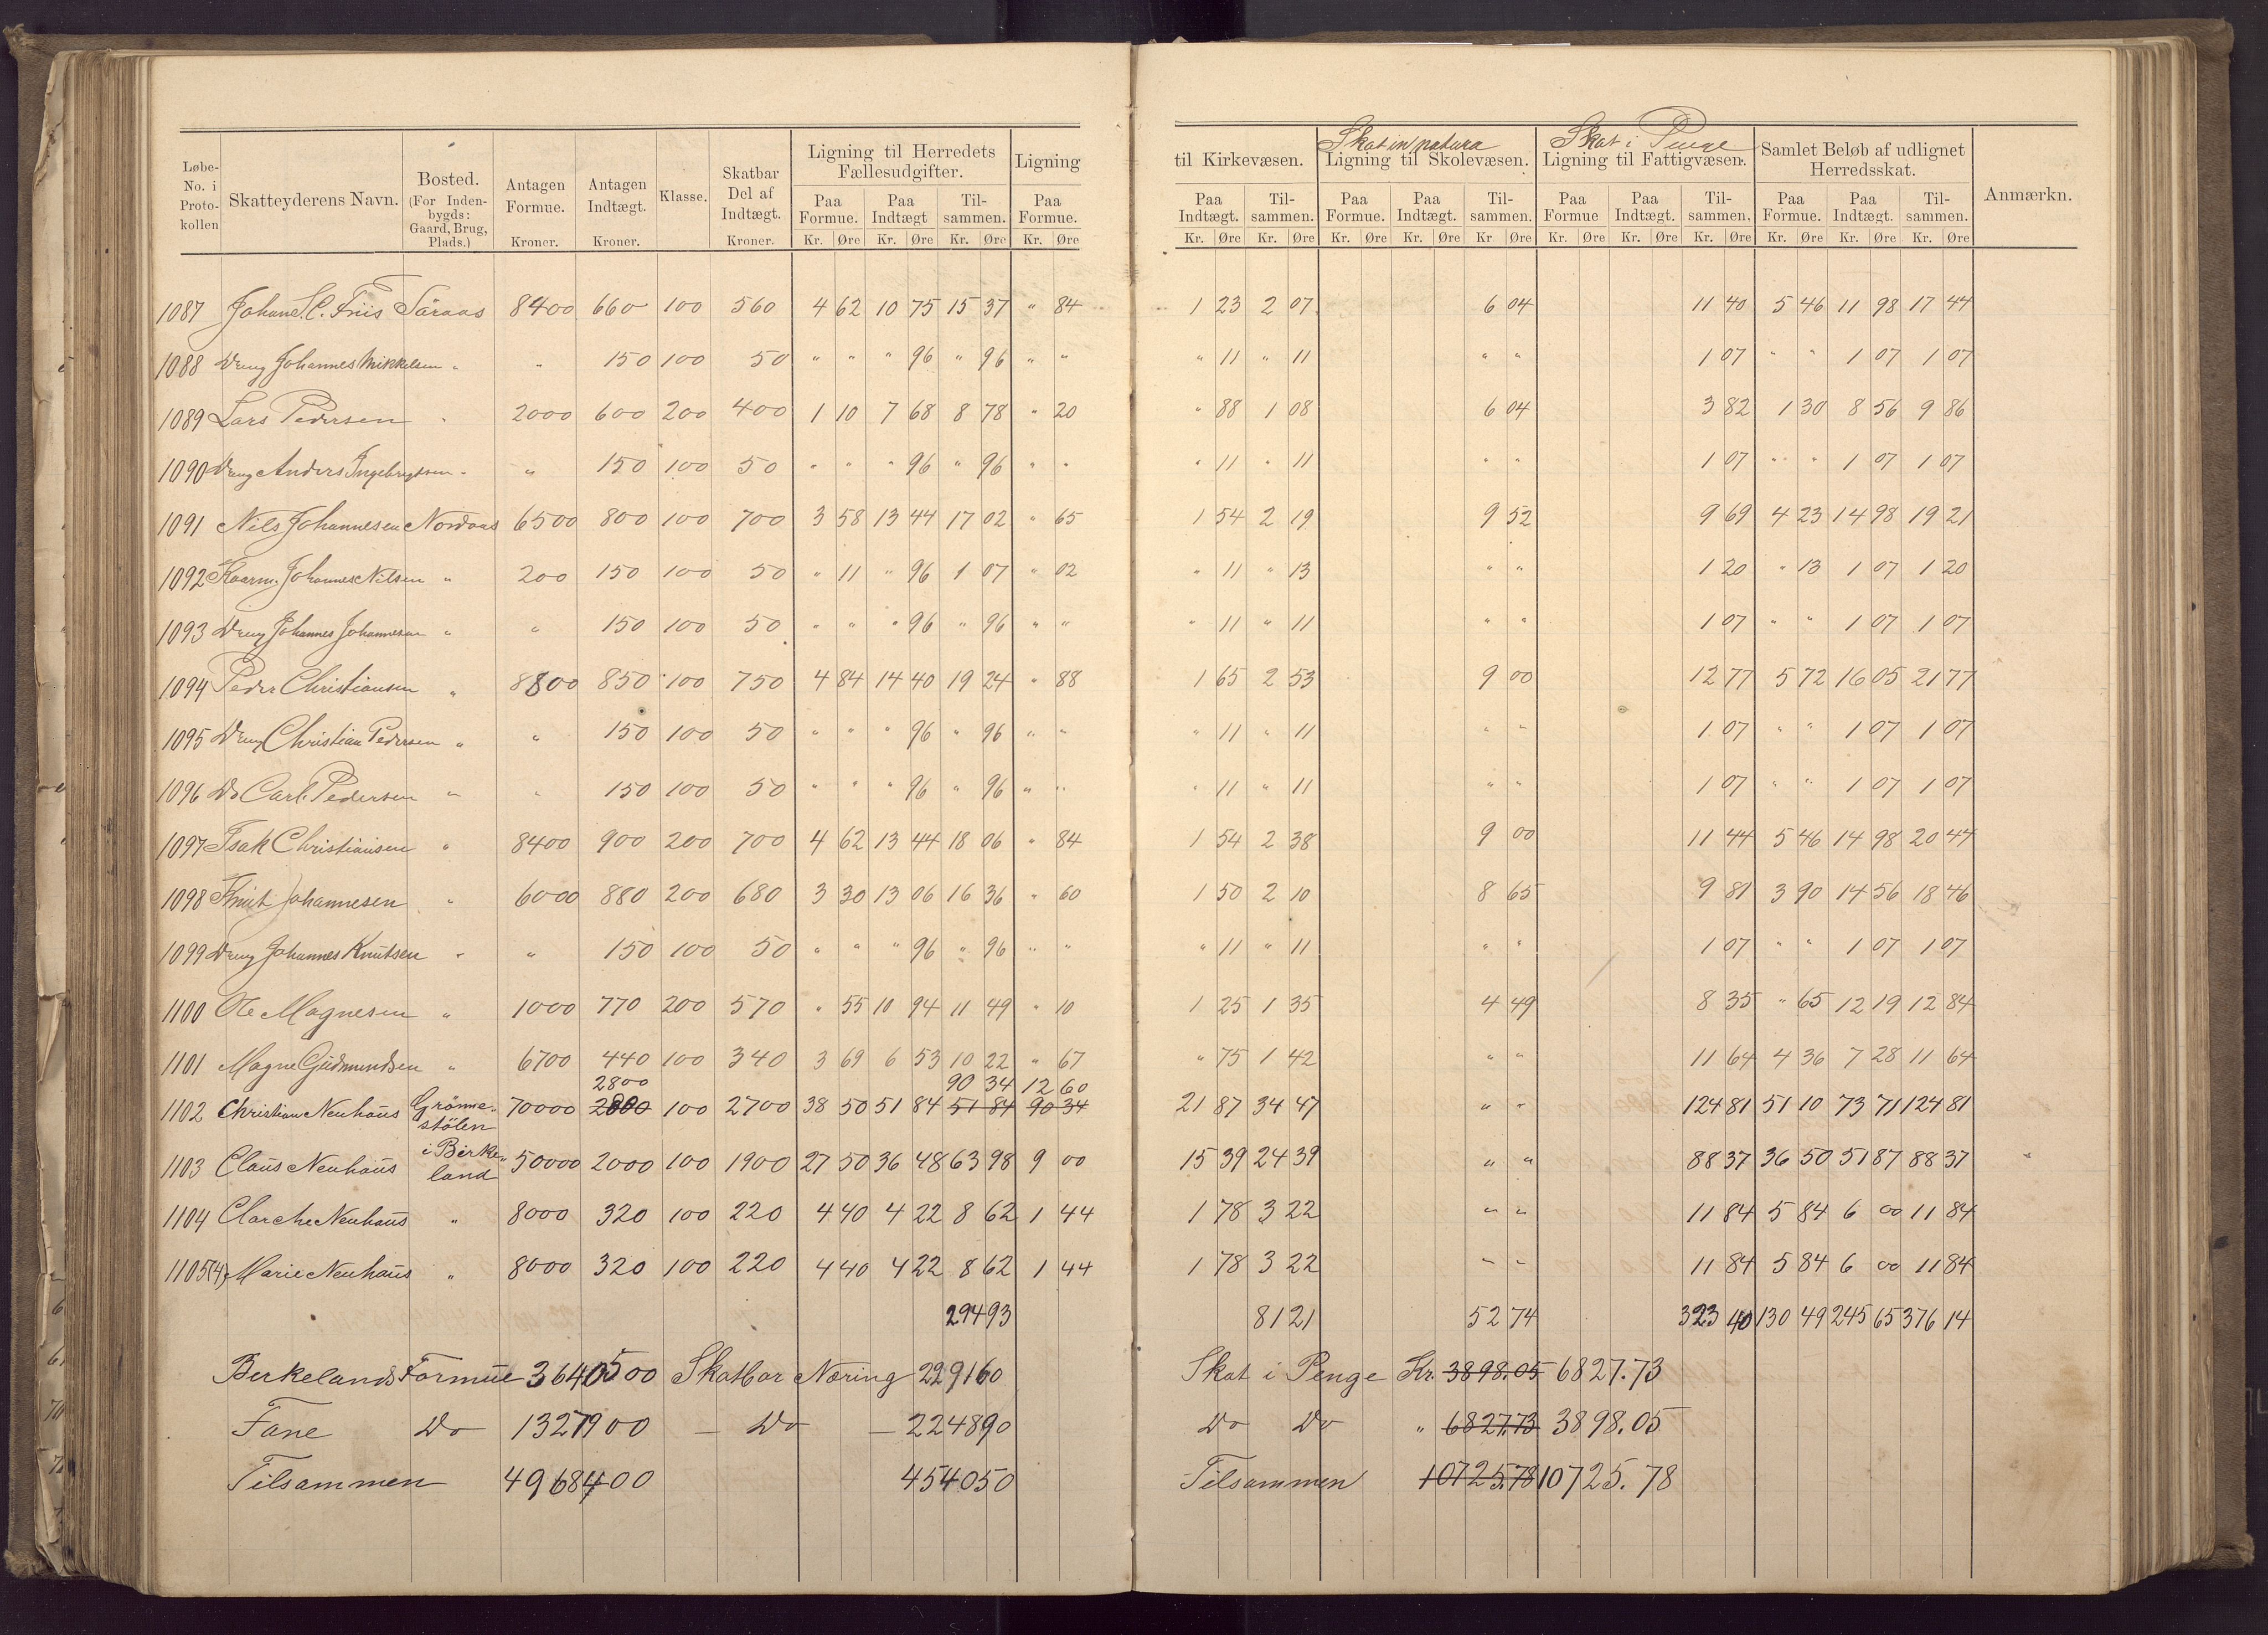 Løbe-No. i Proto-kollen | Skatteyderens Navn. | Bosted. (For Inden-bygds: Gaard, Brug, Plads.) | Antagen Formue. Kroner. | Antagen Indtægt. Kroner. | Klasse. | Skatbar Del af Indtægt. Kroner. | Ligning til Herredets Fællesudgifter. Paa Formue. Kr. Øre | Paa Indtægt Kr. Øre | Til-sammen. Kr. Øre | Ligning Paa Formue. Kr. Øre | til Kirkevæsen. Paa Indtægt. Kr. Øre | Til-sammen. Kr. Øre | Skat in natura Ligning til Skolevæsen. Paa Formue. Kr. Øre | Paa Indtægt. Kr. Øre | Til-sammen. Kr Øre | Skat i Penge Ligning til Fattigvæsen. Paa Formue Kr. Øre | Paa Indtægt. Kr. Øre | Til-sammen. Kr. Øre | Samlet Beløb af udlignet Herredsskat. Paa Formue. Kr. Øre | Paa Indtægt. Kr. Øre | Til-sammen. Kr. Øre | Anmærkn.
1087 Johan S. C. Friis Säraas 8400 660 100 560 4 62 10 75 15 37 " 84 1 23 2 07 6 04 11 40 5 46 11 98 17 44
1088 Dreng Johannes Mikkelsen " " 150 100 50 " " " 96 " 96 " " " 11 " 11 " " 1 07 " " 1 07 1 07
1089 Lars Pedersen " 2000 600 200 400 1 10 7 68 8 78 " 20 " 88 1 08 6 04 3 82 1 30 8 56 9 86
1090 Dreng Anders Ingebrigtsen " " 150 100 50 " " " 96 " 96 " " " 11 " 11 " " 1 07 " " 1 07 1 07
1091 Nils Johannesen Nordaas 6500 800 100 700 3 58 13 44 17 02 " 65 1 54 2 19 9 52 9 69 4 23 14 98 19 21
1092 Kaarm. Johannes Nilsen " 200 150 100 50 " 11 " 96 1 07 " 02 " 11 " 13 " " 1 20 " 13 1 07 1 20
1093 Dreng Johannes Johannesen " " 150 100 50 " " " 96 " 96 " " " 11 " 11 " " 1 07 " " 1 07 1 07
1094 Peder Christiansen " 8800 850 100 750 4 84 14 40 19 24 " 88 1 65 2 53 9 00 12 77 5 72 16 05 21 77
1095 Dreng Christian Pedersen " " 150 100 50 " " " 96 " 96 " " " 11 " 11 " " 1 07 " " 1 07 1 07
1096 Do Carl Pedersen " " 150 100 50 " " " 96 " 96 " " " 11 " 11 " " 1 07 " " 1 07 1 07
1097 Isak Christiansen " 8400 900 200 700 4 62 13 44 18 06 " 84 1 54 2 38 9 00 11 44 5 46 14 98 20 44
1098 Knut Johannesen " 6000 880 200 680 3 30 13 06 16 36 " 60 1 50 2 10 8 65 9 81 3 90 14 56 18 46
1099 Dreng Johannes Knutsen " " 150 100 50 " " " 96 " 96 " " " 11 " 11 " " 1 07 " " 1 07 1 07
1100 Ole Magnesen " 1000 770 200 570 " 55 10 94 11 49 " 10 1 25 1 35 4 49 8 35 " 65 12 19 12 84
1101 Magne Gudmundsen " 6700 440 100 340 3 69 6 53 10 22 " 67 " 75 1 42 " " 11 64 4 36 7 28 11 64
2800 90 34 12 60
1102 Christian Neuhaus Grönne-stölen 70000 2800 100 2700 38 50 51 84 51 84 90 34 21 87 34 47 " " 124 81 51 10 73 71 124 81
1103 Claus Neuhaus i Birke-land 50000 2000 100 1900 27 50 36 48 63 98 9 00 15 39 24 39 " " 88 37 36 50 51 87 88 37
1104 Clarche Neuhaus " 8000 320 100 220 4 40 4 22 8 62 1 44 1 78 3 22 " " 11 84 5 84 6 00 11 84
1105 (4) Marie Neuhaus " 8000 320 100 220 4 40 4 22 8 62 1 44 1 78 3 22 " " 11 84 5 84 6 00 11 84
294 93 81 21 52 74 323 40 130 49 245 65 376 14
Birkelands Formue 3640500 Skatbar Næring 229160 Skat i Penge Kr. 3898.05 6827.73
Fane Do 1327900 — Do — 224890 Do Do " 6827.73 3898.05
Tilsammen 4968400 454050 Tilsammen 10725.78 10725.78